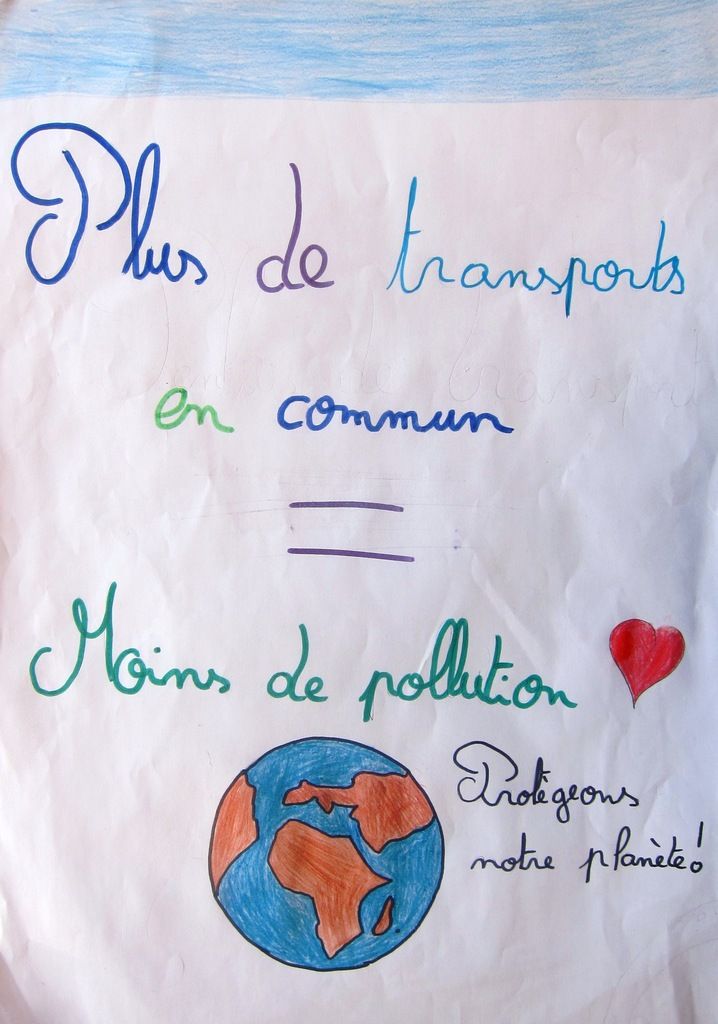 Plus de transports
en commun
=
Moins de pollution
Protégeons
notre planète!